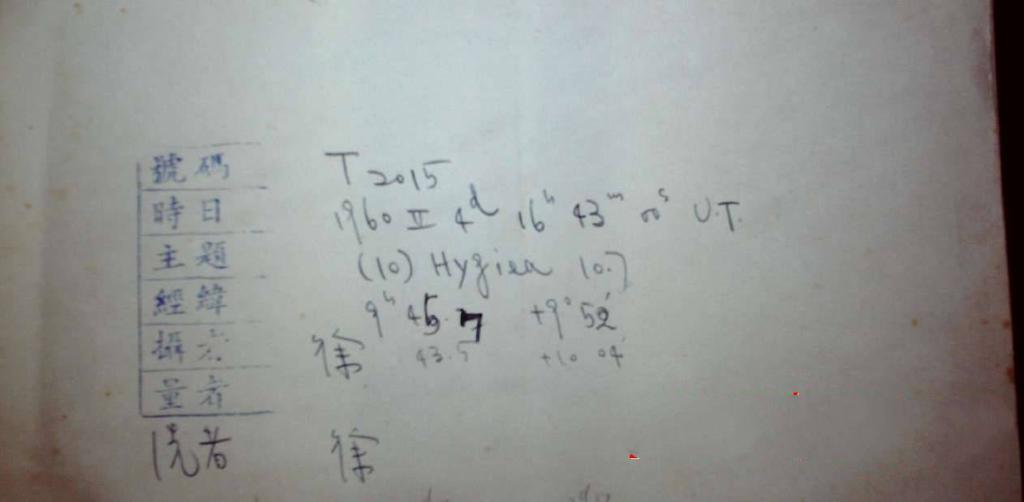 號碼 T 2015
時日 1960 II 4d 16h 43m 00s U.T.
主題 (10) Hygiea 10.7
經緯 9h 45.7 +9° 52'
攝者 徐 43.5 +10 04
量者
洗者 徐